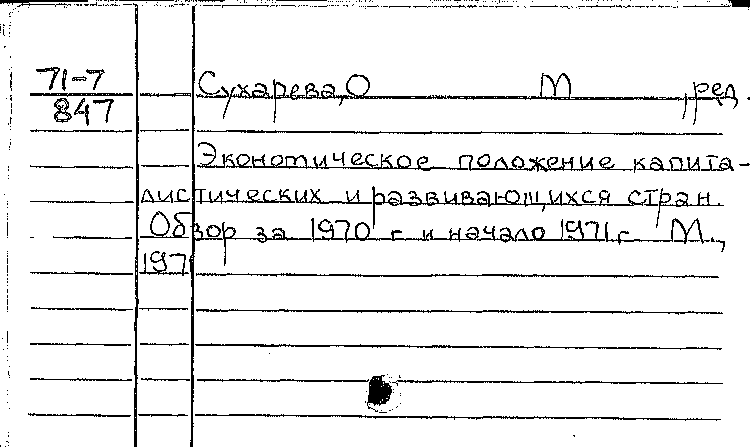 71-7
847
Сухарева, О М , ред.
Экономическое положение капита-
листических и развивающихся стран.
Обзор за 1970 г и начало 1971 г М.,
1971